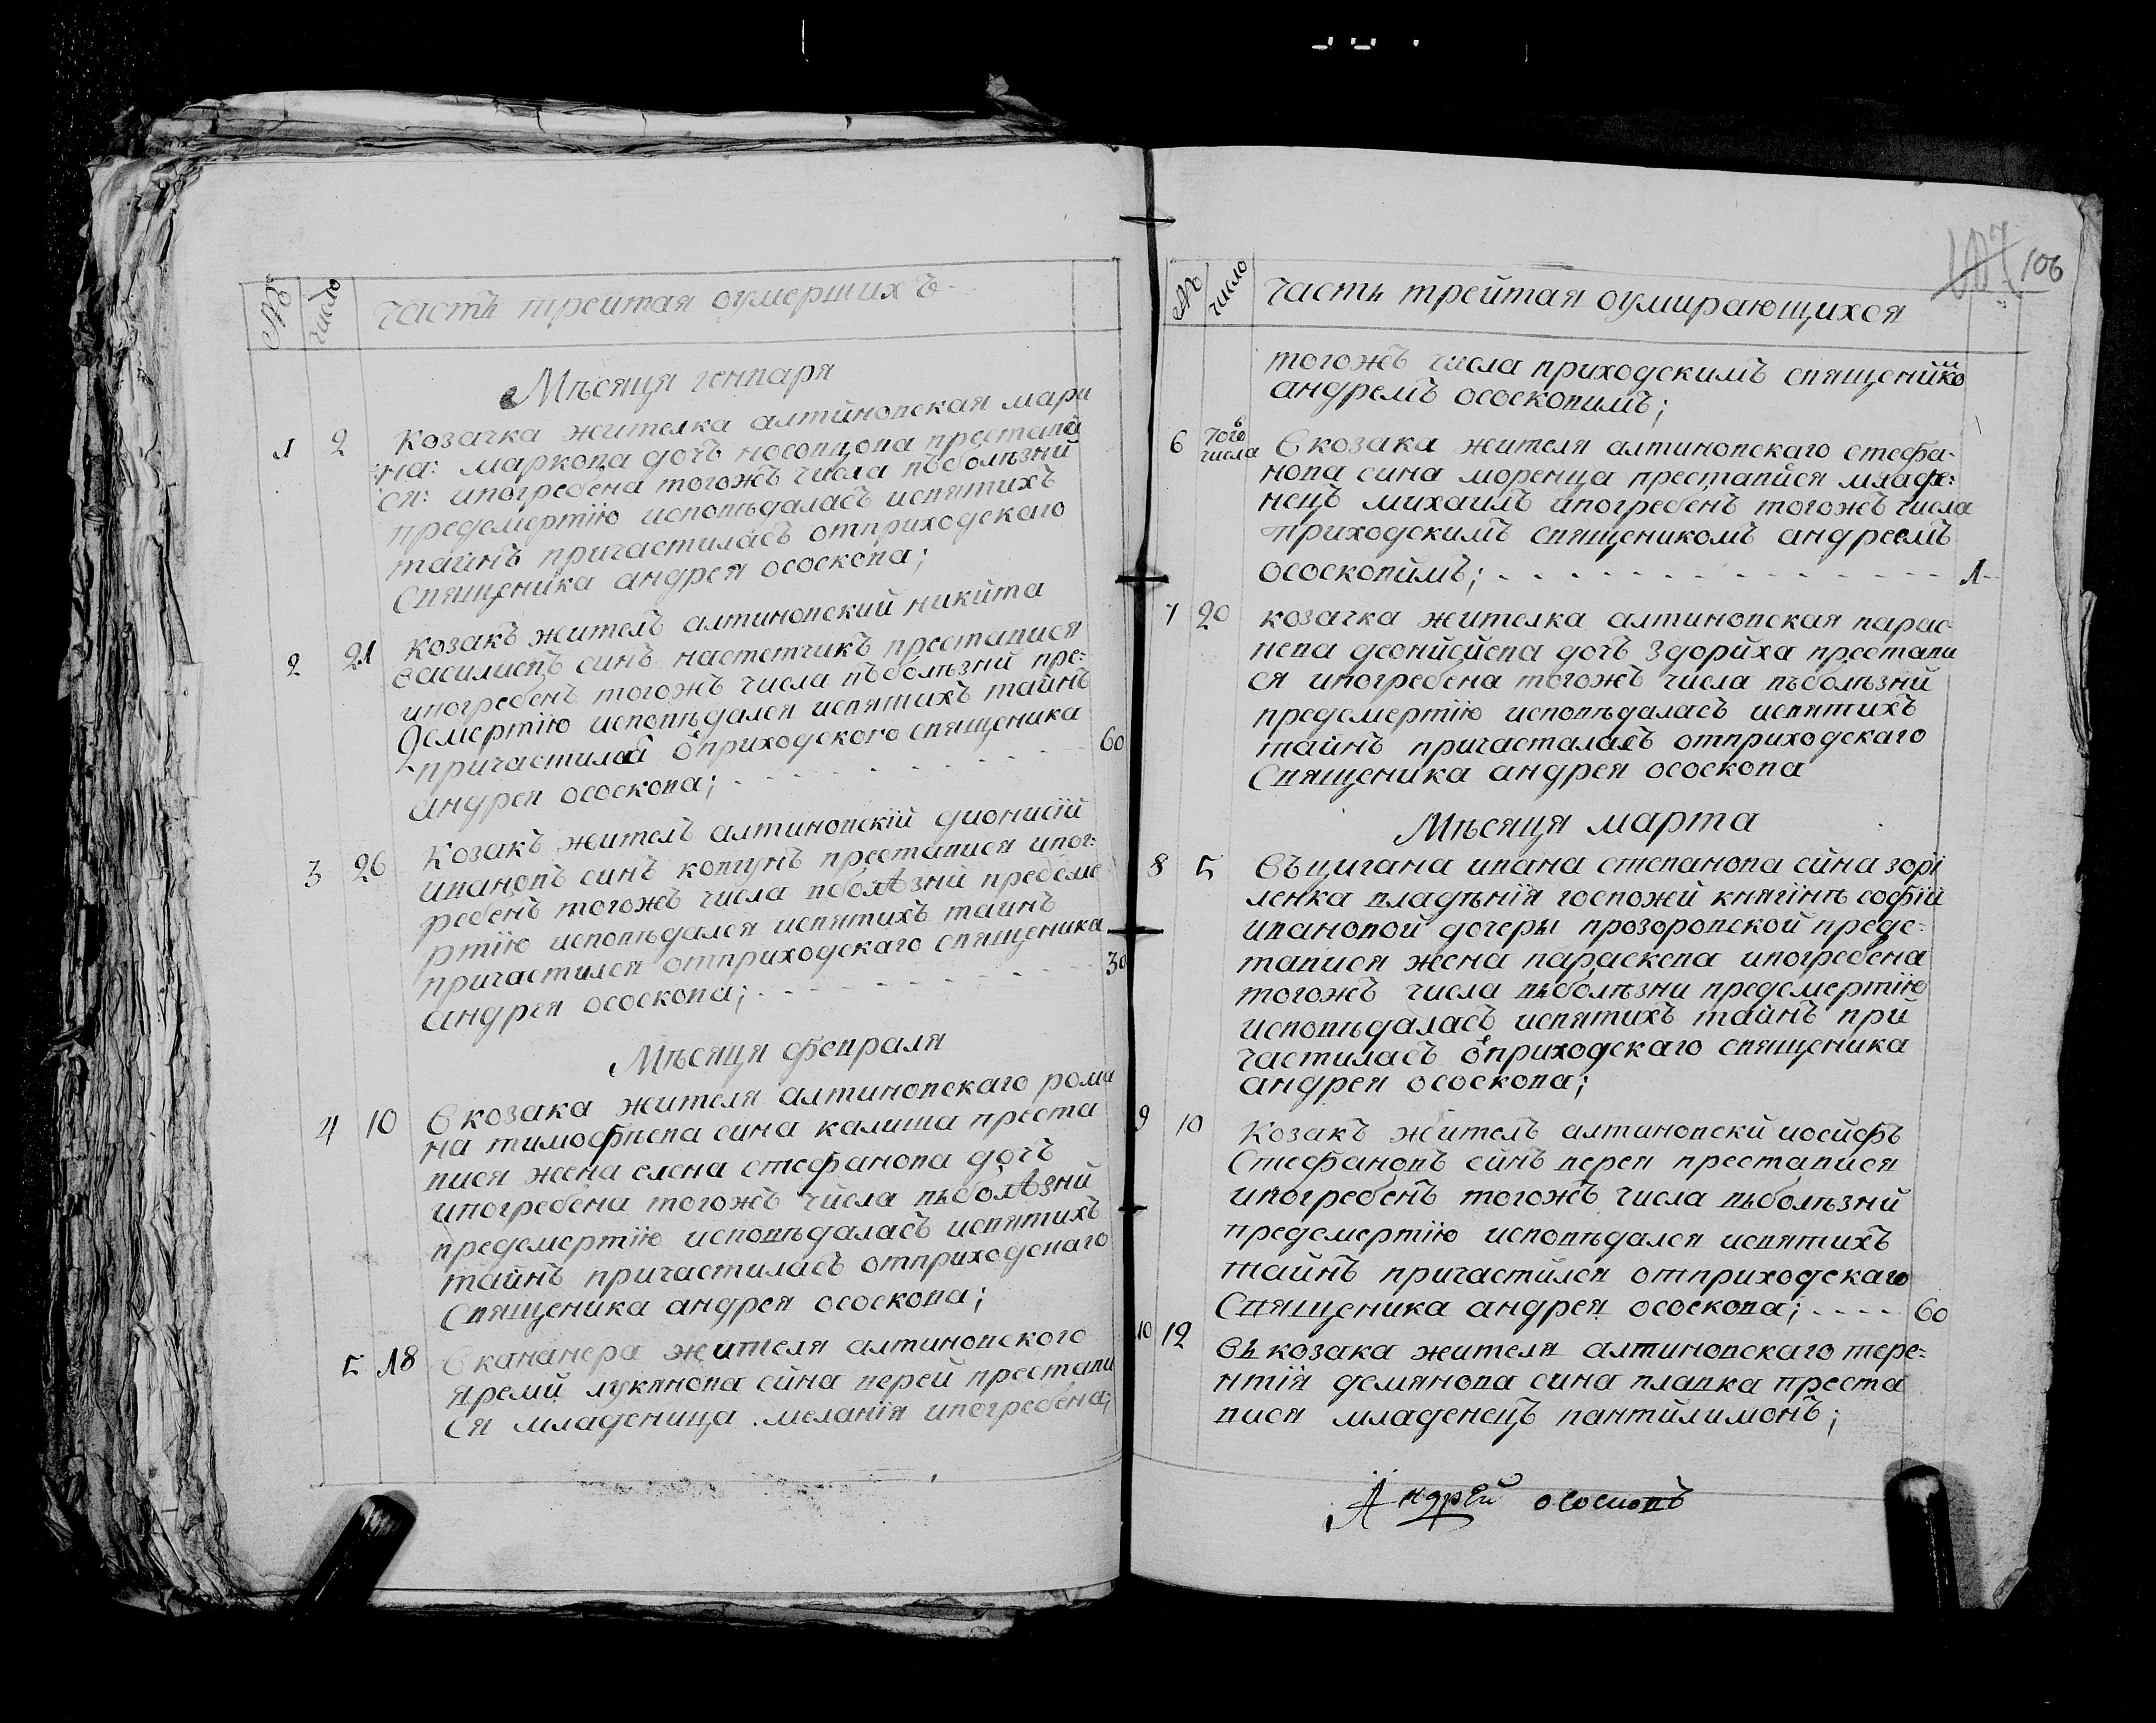 № число часть трейтая оумершихъ
Мѣсяця генваря
1 2 Козачка жителка алтиновская мари
на: маркова дочъ носовцова престави
ся: ипогребена тогожъ числа въболѣзни
предсмертїю исповѣдаласъ исвятихъ
тайнъ причастиласъ отприходскаго
Священика андрея ососкова;
2 21 Козакъ жителъ алтиновский никита
василиевъ синъ настетчикъ преставися
ипогребенъ тогожъ числа въболѣзни пре:
дсмертїю исповѣдался исвятихъ тайнъ
причастился ѿприходского священика
андрея ососкова; 60
3 26 Козакъ жителъ алтиновскїй дионисїй
ивановъ синъ ковтунъ преставися ипог:
ребенъ тогожъ числа вболѣзни предсме
ртїю исповѣдался исвятихъ таинъ
причастился отприходскаго священика
андрея ососкова; 30
Мѣсяця февраля
4 10 В козака жителя алтиновскаго рома
на тимофѣева сина калиша преста
вися жена елена стефанова дочъ
ипогребена тогожъ числа въболѣзни
предсмертїю исповѣдаласъ исвятихъ
тайнъ причастиласъ отприходскаго
Священика андрея ососкова;
5 18 В кананера жителя алтиновского
яремй лукянова сйна верей престави
ся младеница меланїя ипогребена;
107 106
№ число часть трейтая оумирающихся
тогожъ числа приходскимъ священико
андреемъ ососковимъ;
6 того числа В козака жителя алтиновскаго стефа-
нова сина моренца преставйся младе:
нецъ михаилъ ипогребенъ тогожъ числа
приходскимъ священикомъ андреемъ
ососковимъ; 1
7 20 козачка жителка алтиновская парас
кева деонисйева дочъ здорйха престави
ся ипогребена тогожъ числа въболѣзни
предсмертїю исповѣдаласъ исвятихъ
тайнъ причасталасъ отприходскаго
Священика андрея ососкова
Мѣсяця марта
8 5 Въ цигана ивана степанова сйна зорі
ленка владѣнїя госпожей княгїнѣ софїй
ивановой дочеры прозоровской предс-
тавися жена параскева ипогребена
тогожъ числа въболѣзни предсмертїю
исповѣдаласъ исвятихъ тайнъ при
частиласъ ѿприходскаго священика
андрея ососкова;
9 10 Козакъ жйтелъ алтиновски иосйфъ
Стефановъ сйнъ верея преставися
ипогребенъ тогожъ числа въболѣзнй
предсмертїю исповѣдался исвятихъ
тайнъ причастйлся отприходскаго
Священика андрея ососкова; 60
10 12 Въ козака жителя алтиновскаго тере-
нтїя демянова сина плавка преста
вися младенецъ пантйлимонъ;
Андрей ососковъ